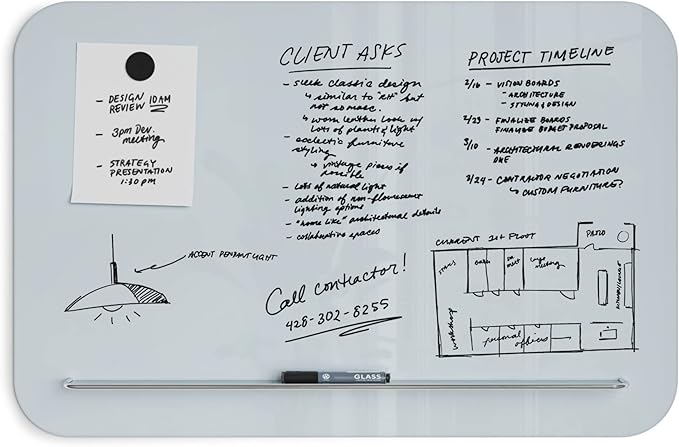 - DESIGN
REVIEW 10AM
- 3pm Dev.
meeting
- STRATEGY
PRESENTATION
1:30 PM
CLIENT ASKS
- sleek classic design
↳ similar to "RH" but
not so masc.
↳ worn leather look w/
lots of plants & light
- ecclectic furniture
styling
↳ vintage pieces if
possible
- Lots of natural light
- addition of non-flourescent
lighting options
- "home like" architectural details
- collaborative spaces
PROJECT TIMELINE
2/16 - VISION BOARDS
- ARCHITECTURE
- STYLING & DESIGN
2/23 - FINALIZE BOARDS
FINALIZE BUDGET PROPOSAL
3/10 - ARCHITECTURAL RENDERINGS
DUE
3/24 - CONTRACTOR NEGOTIATION
↳ CUSTOM FURNITURE?
ACCENT PENDANT LIGHT
Call contractor!
428-302-8255
CURRENT 1st FLOOR
PATIO
large meeting
workshop
personal offices
GLASS